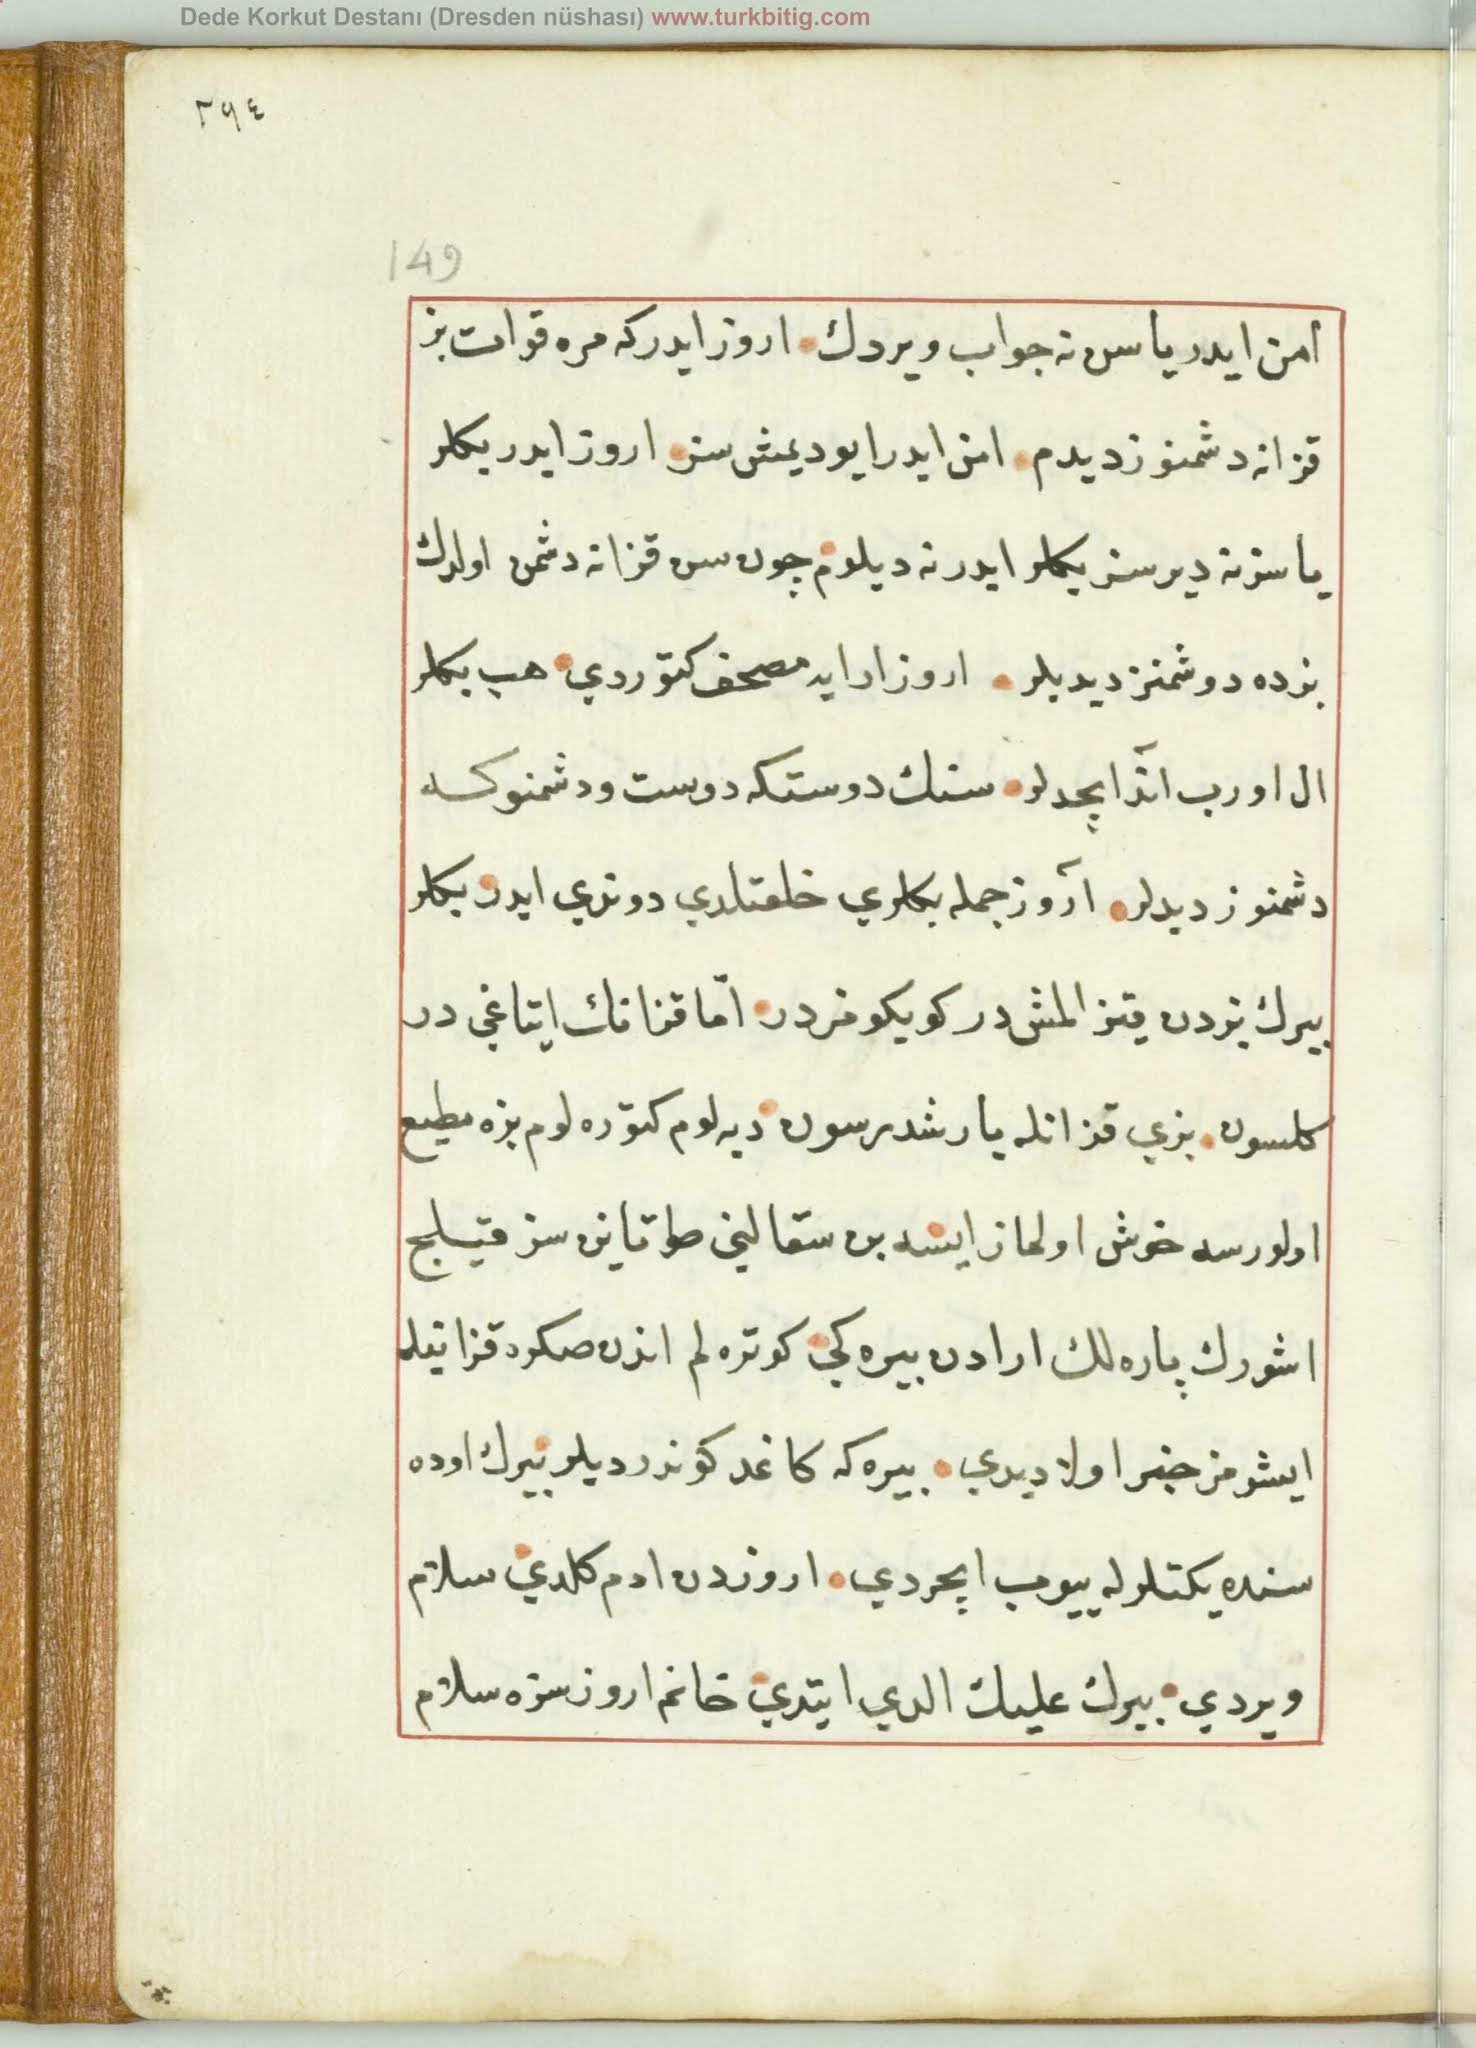 Dede Korkut Destanı (Dresden nüshası) www.turkbitig.com
٢٩٤
149
امن ايدر يا سن نه جواب ويردك اروز ايدر كه مره قوات بز
قزانه دشمنوز ديدم امن ايدر ايو ديمش سز اروز ايدر بكلر
يا سز نه ديرسز بكلر ايدر نه ديلوم چون سن قزانه دشمن اولدك
بزده دوشمنز ديديلر اروز ارايه مصحف كتوردي هب بكلر
ال اورب اند ايچدلر سنك دوستكه دوست ودشمنوكه
دشمنوز ديدلر اروز جمله بكلري خلعتلدي دوندي ايدر بكلر
بيرك بزدن قيز المش در كويكومز در امّا قزانك ايناغي در
كلسون بزي قزانله بارشدرسون ديه لوم كتوره لوم بزه مطيع
اولورسه خوش اولماز ايسه بن سقالنى طوتاين سز قيلج
اشورك پاره لك ارادن بيره كي كوتره لم اندن صكره قزانيله
ايشومز خير اولا ديدي بيره كه كاغد كوندرديلر بيرك اوده
سنده يكتلرله ييوب ايچردي اروزدن ادم كلدي سلام
ويردي بيرك عليك الدي ايتدي خانم اروز سزه سلام